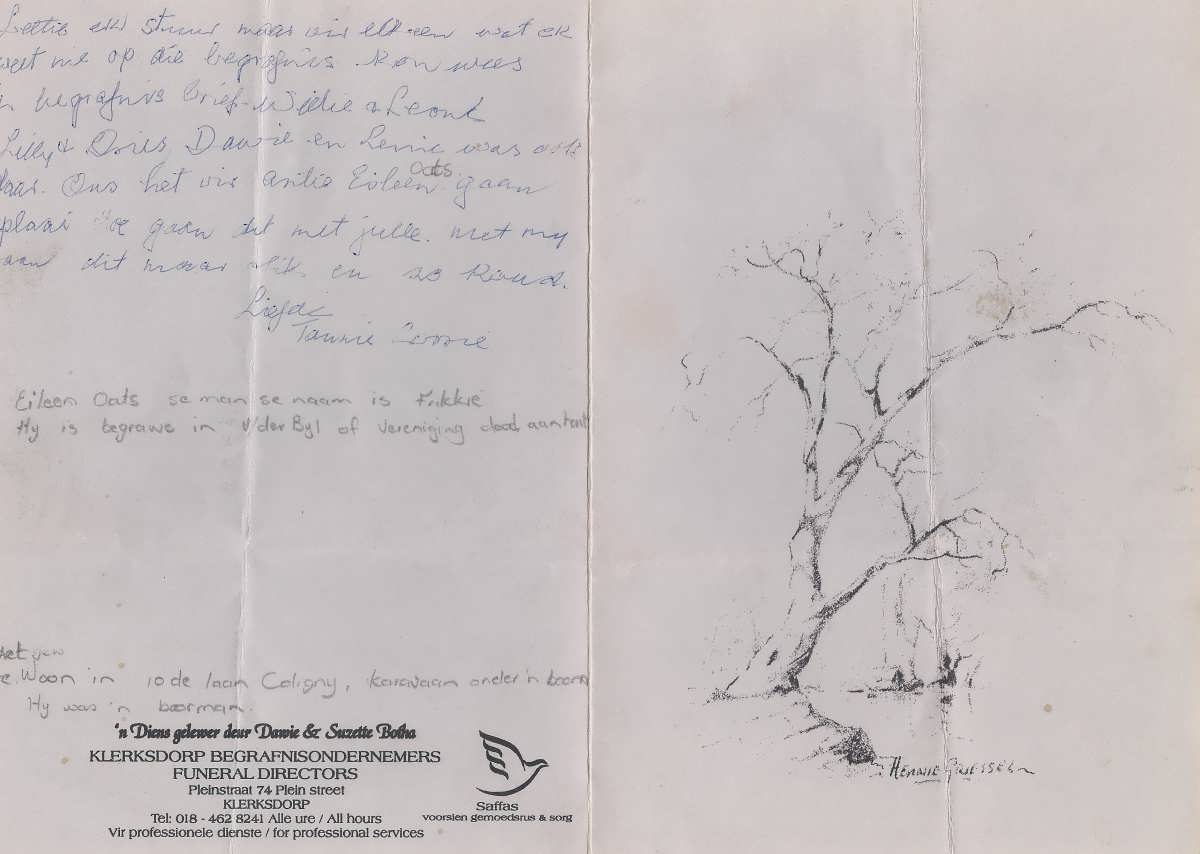 ek stuur maar vir elkeen wat ek
weet nie op die begrafnis kon wees
'n begrafnis brief. Willie &
Lilly & Doris, Dawie en was ook
daar. Ons het vir antie Eileen Oats gaan
gaan dit met julle. met my
gaan dit maar en so rond.
Liefde
Tannie
Eileen Oats se man se naam is Frikkie
Hy is begrawe in V/der Byl of Vereniging dood aan
het
Woon in 10de laan Coligny, karavaan onder 'n boom
Hy was 'n boorman.
'n Diens gelewer deur Dawie & Suzette Botha
KLERKSDORP BEGRAFNISONDERNEMERS
FUNERAL DIRECTORS
Pleinstraat 74 Plein street
KLERKSDORP
Tel: 018 - 462 8241 Alle ure / All hours
Vir professionele dienste / for professional services
Saffas
voorsien gemoedsrus & sorg
HENNIE